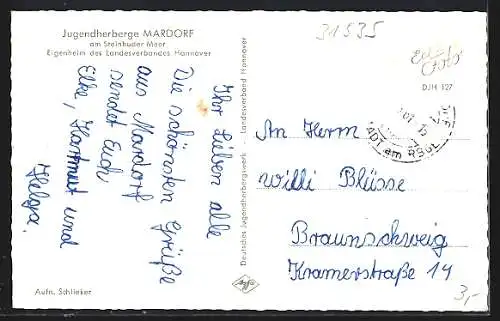 Jugendherberge MARDORF
am Steinhuder Meer
Eigenheim des Landesverbandes Hannover
Ihr Lieben alle
Die schönsten Grüße
aus Mardorf
sendet Euch
Elke, Hartmut und
Helga.
Aufn. Schlieker
Deutsches Jugendherbergswerk - Landesverband Hannover
Agfa
31535
DJH 127
ADT am RBGE
An Herrn
Willi Blüsse
Braunschweig
Kramerstraße 14
3,-